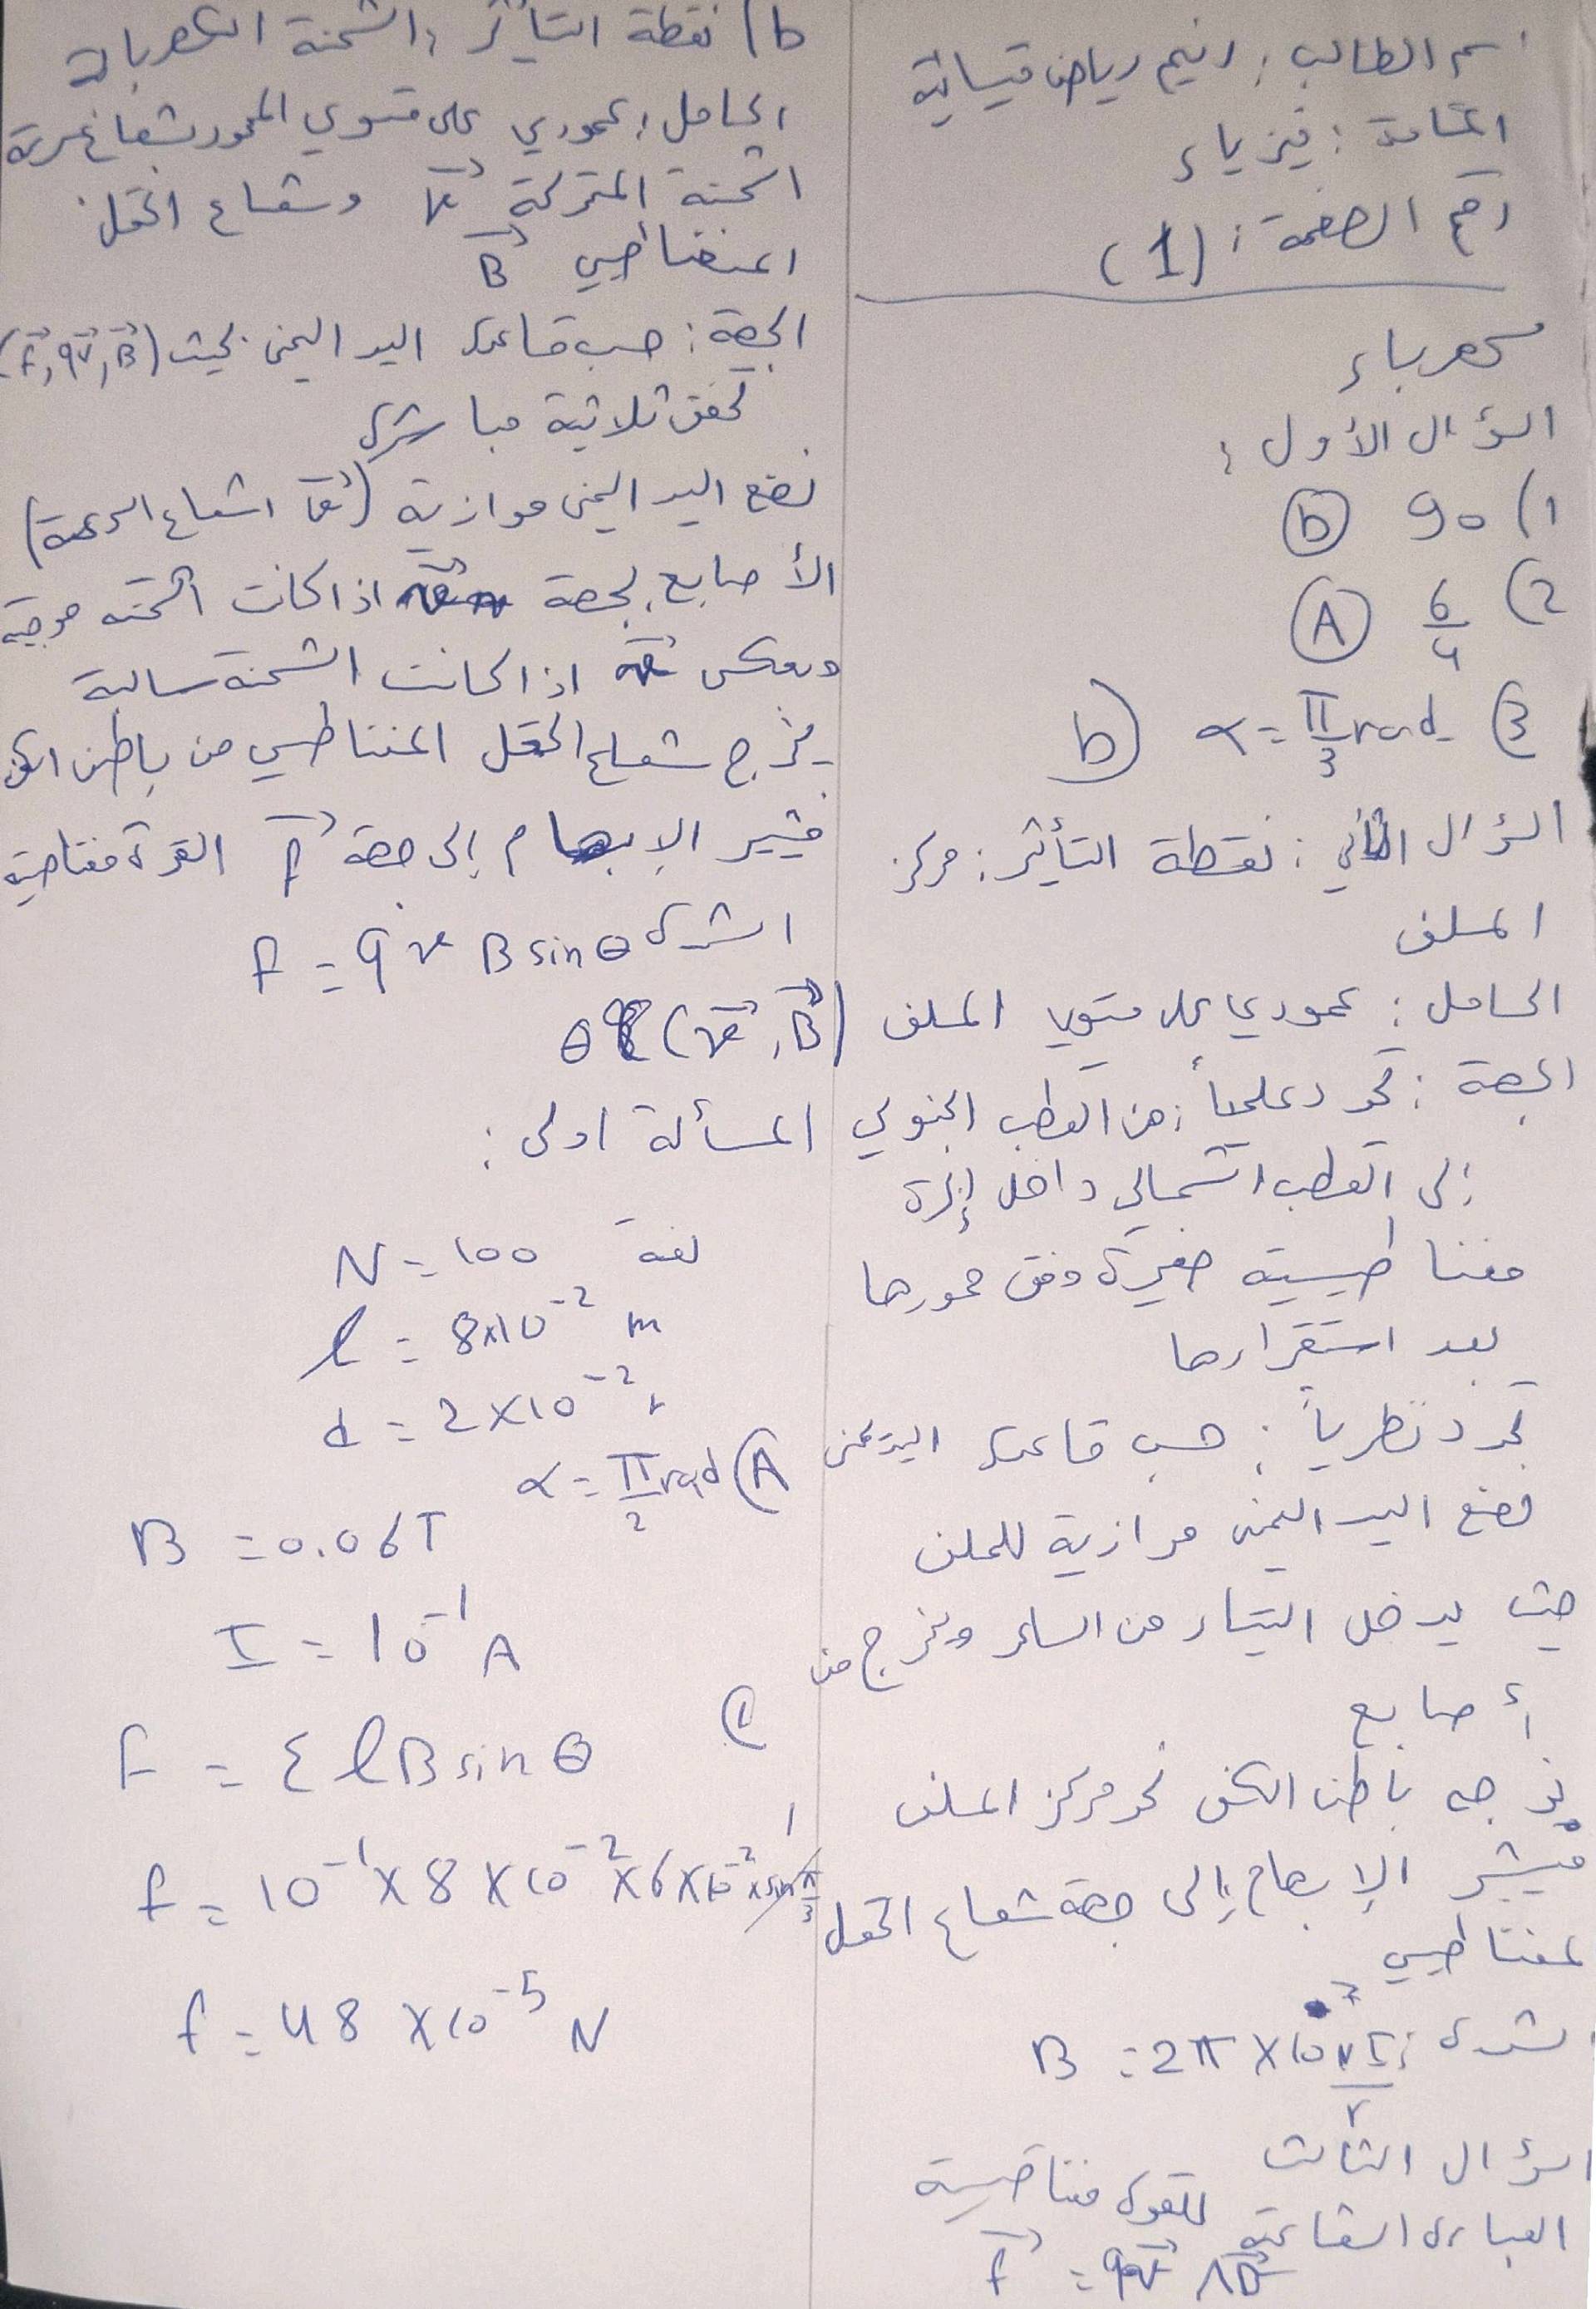 اسم الطالب: رنيم رياض قيسانية
المادة: فيزياء
رقم الصفحة: (1)
كهرباء
السؤال الأول:
1) 90 (b)
2) 6/4 (A)
3) α = π/3 rad (b)
السؤال الثاني: نقطة التأثير: مركز
الملف
الحامل: عمودي على مستوي الملف
الجهة: تحدد عملياً: من القطب الجنوبي
إلى القطب الشمالي داخل إبرة
مغناطيسية صغيرة وفق محورها
بعد استقرارها
تحدد نظرياً: حسب قاعدة اليد اليمنى
نضع اليد اليمنى موازية للملف
حيث يدخل التيار من الساعد ويخرج من
أصابع
نوجه باطن الكف نحو مركز الملف
فيشير الإبهام إلى جهة شعاع الحقل
لمغناطيسي
شدة: B = 2π × 10⁻⁷ NI/r
السؤال الثالث
العبارة الشعاعية للقوة مغناطيسية
f⃗ = qv⃗ ∧ B⃗
b) نقطة التأثير: الشحنة الكهربائية
الحامل: عمودي على مستوي المحدد بشعاع سرعة
الشحنة المتحركة v⃗ وشعاع الحقل
المغناطيسي B⃗
الجهة: حسب قاعدة اليد اليمنى بحيث (f⃗, qv⃗, B⃗)
تحقق ثلاثية مباشرة
نضع اليد اليمنى موازية (v⃗ شعاع السرعة)
الأصابع بجهة v⃗ اذا كانت الشحنة موجبة
وبعكس v⃗ اذا كانت الشحنة سالبة
يخرج شعاع الحقل المغناطيسي من باطن الكف
فيشير الإبهام إلى جهة f⃗ القوة مغناطيسية
الشدة f = qvB sin θ
θ (v⃗, B⃗)
المسألة اولى:
N = 100 لفة
l = 8×10⁻² m
d = 2×10⁻²
A) α = π/2 rad
B = 0.06T
I = 10⁻¹ A
1) F = I l B sin θ
f = 10⁻¹ × 8 × 10⁻² × 6 × 10⁻² × sin π/2 1
f = 48 × 10⁻⁵ N